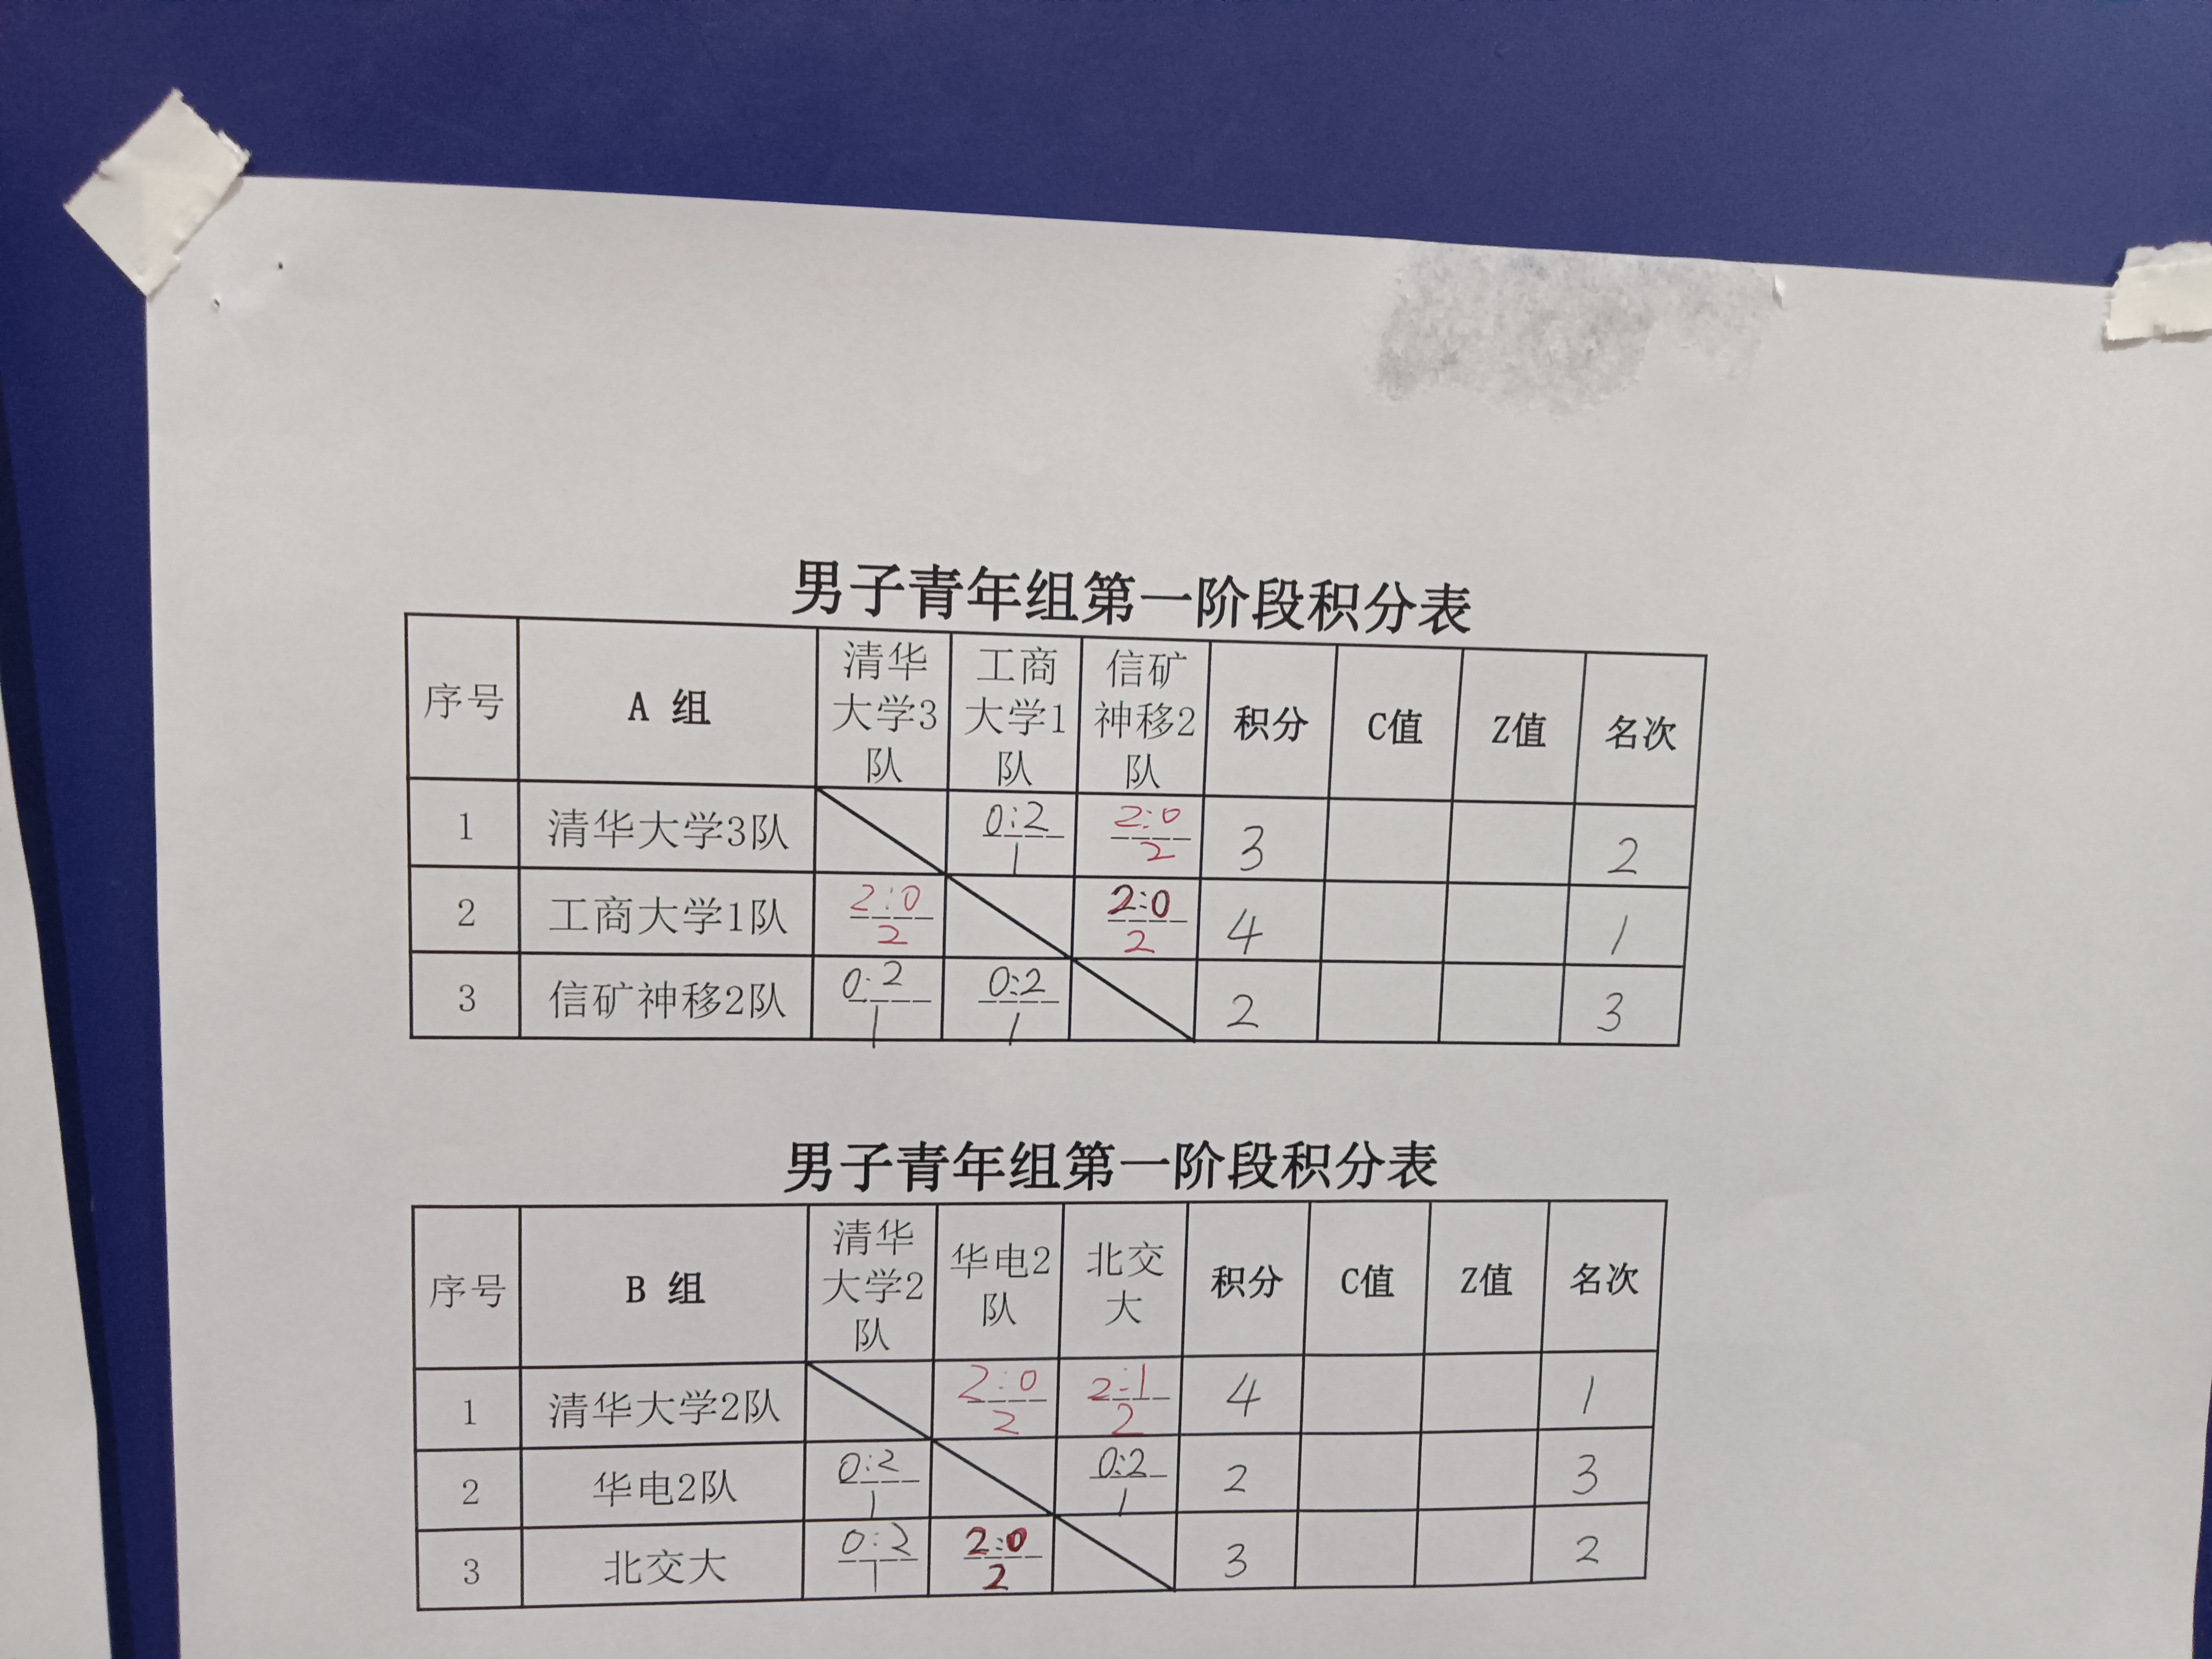 男子青年组第一阶段积分表
序号 A 组 清华大学3队 工商大学1队 信矿神移2队 积分 C值 Z值 名次
1 清华大学3队 0:2 1 2:0 2 3 2
2 工商大学1队 2:0 2 2:0 2 4 1
3 信矿神移2队 0:2 1 0:2 1 2 3
男子青年组第一阶段积分表
序号 B 组 清华大学2队 华电2队 北交大 积分 C值 Z值 名次
1 清华大学2队 2:0 2 2:1 2 4 1
2 华电2队 0:2 1 0:2 1 2 3
3 北交大 0:2 1 2:0 2 3 2